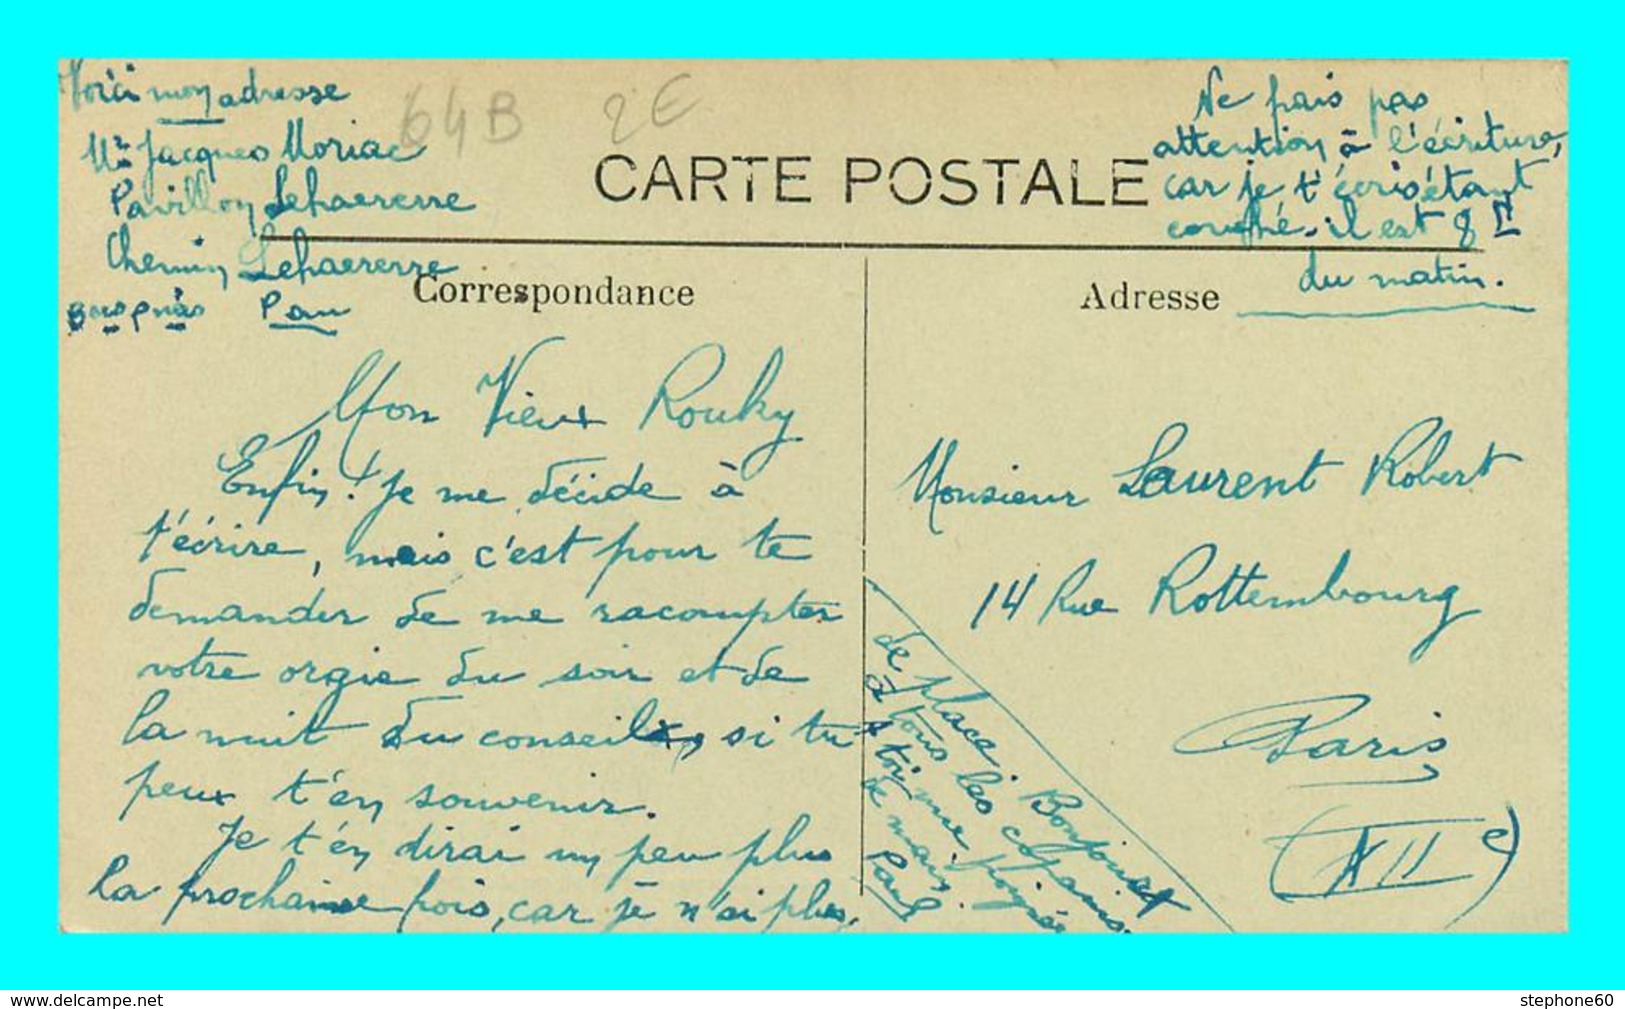 Voici mon adresse
Mr Jacques Moriac
Pavillon Lehaererre
Chemin Lehaererre
Pau
64B 2E
Ne fais pas
attention à l'écriture,
car je t'écris étant
couché. il est 8 H
du matin.
CARTE POSTALE
Correspondance
Adresse
Mon Vieux Rouky
Enfin! je me décide à
t'écrire, mais c'est pour te
demander de me racompter
votre orgie du soir et de
la nuit du conseil, si tu
peux t'en souvenir.
Je t'en dirai un peu plus
la prochaine fois, car je n'ai plus
de place. Bonjour
à tous les copains.
à toi une poignée
de main.
Paul
Monsieur Laurent Robert
14 Rue Rottembourg
Paris
(XIIe)
www.delcampe.net
stephone60